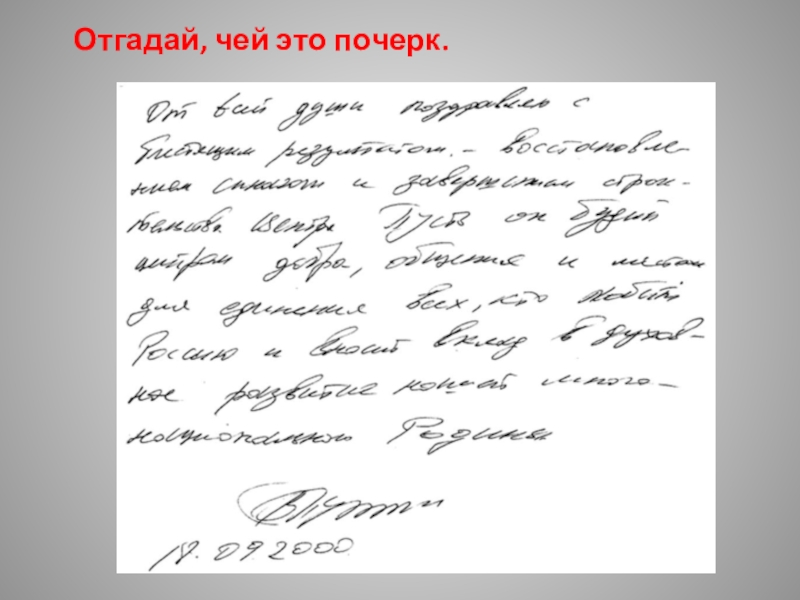 Отгадай, чей это почерк.
От всей души поздравляю с
блестящим результатом – восстановле-
нием синагоги и завершением строи-
тельства Центра. Пусть он будет
центром добра, общения и местом
для единения всех, кто любит
Россию и вносит вклад в духов-
ное развитие нашей много-
национальной Родины
ВПутин
18.09.2000